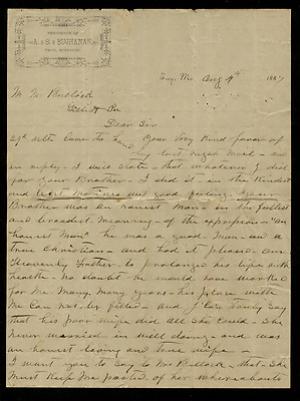 RESIDENCE OF
A. & S. BUCHANAN
Troy, Mo Aug 4th 1887
Mr Bullock
Dear Sir
29th ulto came to hand Your Very Kind favor of
my last night mail - and
in reply I will state that whatever I did
for Your Brother - I did it in the Kindest
and best motives and good feeling. Your
Brother was an honest Man in the fullest
and broadest Meaning of the expression "an
honest Man" he was a good Man and a
true Christian - and had it pleased our
Heavenly Father to prolong his life with
health - no doubt he would have worked
for me Many Many Years - his place with
Me can not be filled - and I can safely say
that his poor wife did all she could - she
never wearied in well doing - and was
an honest loving and true wife -
I want you to say to Mrs Bullock - that she
must keep me posted of her whereabouts